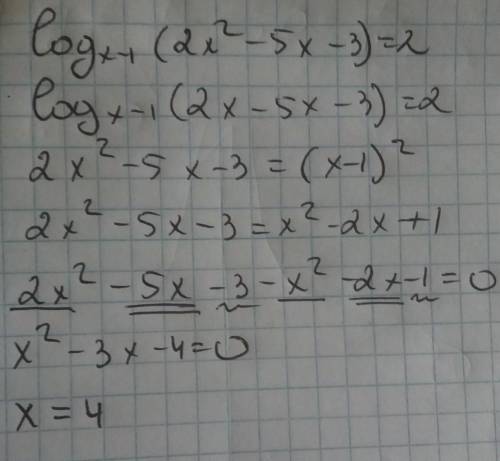 log_{x-1} (2x² - 5x - 3) = 2
log_{x-1} (2x - 5x - 3) = 2
2x² - 5x - 3 = (x-1)²
2x² - 5x - 3 = x² - 2x + 1
2x² - 5x - 3 - x² - 2x - 1 = 0
x² - 3x - 4 = 0
x = 4